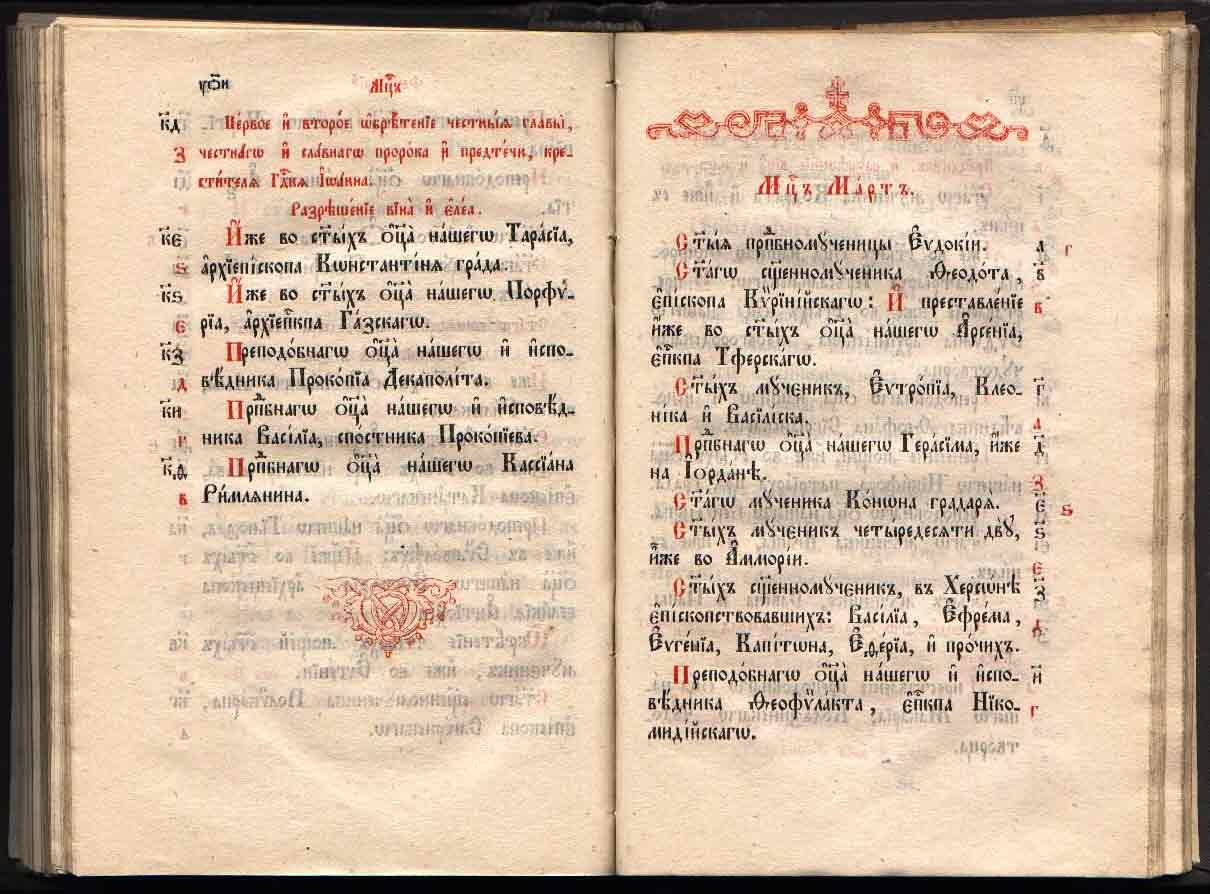 уои Мц҃ъ
к҃д Первое и҆ второ́е ѡ҆брѣ́тенїе честны́ѧ главы̀,
з честна́гѡ и҆ сла́внагѡ проро́ка и҆ предте́чи, кре-
стителѧ гдⷭ҇нѧ І҆ѡа́нна.
Разрѣше́нїе вїна̀ и҆ є҆ле́а.
к҃є И҆́же во ст҃ы́хъ ѻ҆ц҃а̀ на́шегѡ Тара́сїа,
ѕ а҆рхїепі́скопа Кѡнстанті́нѧ гра́да.
к҃ѕ И҆́же во ст҃ы́хъ ѻ҆ц҃а̀ на́шегѡ Порфѵ́-
є рїа, а҆рхїепⷭ҇кпа Га́зскагѡ.
к҃з Преподо́бнагѡ ѻ҆ц҃а̀ на́шегѡ и҆ и҆спо-
д вѣ́дника Проко́пїа Декаполі́та.
к҃и Прпⷣбнагѡ ѻ҆ц҃а̀ на́шегѡ и҆ и҆сповѣ́д-
г ника Васі́лїа, спо́стника Проко́пїева.
к҃ѳ Прпⷣбнагѡ ѻ҆ц҃а̀ на́шегѡ Кассїа́на
в Ри́млѧнина.
Мц҃ъ Ма́ртъ.
Ст҃ы́ѧ прпⷣбномꙋ́ченицы Є҆ѵдокі́и. а г
Ст҃а́гѡ сщ҃енномꙋ́ченика Ѳеодо́та, в҃
є҆пі́скопа Кѵ̈рині́йскагѡ: И҆ преставле́нїе в
и҆́же во ст҃ы́хъ ѻ҆ц҃а̀ на́шегѡ А҆рсе́нїа,
є҆пⷭ҇кпа Тфе́рскагѡ.
Ст҃ы́хъ мꙋ́ченикъ, Є҆ѵтро́пїа, Клео- г҃
ні́ка и҆ Васілі́ска. а
Прпⷣбнагѡ ѻ҆ц҃а̀ на́шегѡ Гера́сїма, и҆́же д҃
на І҆ѻрда́нѣ. з
Ст҃а́гѡ мꙋ́ченика Ко́нѡна градарѧ̀. є҃ ѕ
Ст҃ы́хъ мꙋ́ченикъ четы́редесѧти двꙋ̀, ѕ҃
и҆́же во А҆ммо́рїи. є
Ст҃ы́хъ сщ҃енномꙋ́ченикъ, въ Херсѡ́нѣ з҃
є҆пі́скопствовавшихъ: Васі́лїа, Є҆фре́ма, д
Є҆ѵге́нїа, Капі́тѡна, Є҆ѳе́рїа, и҆ про́чихъ.
Преподо́бнагѡ ѻ҆ц҃а̀ на́шегѡ и҆ и҆спо- и҃
вѣ́дника Ѳеофѵ́лакта, є҆пⷭ҇кпа Нїко- г
миді́йскагѡ.